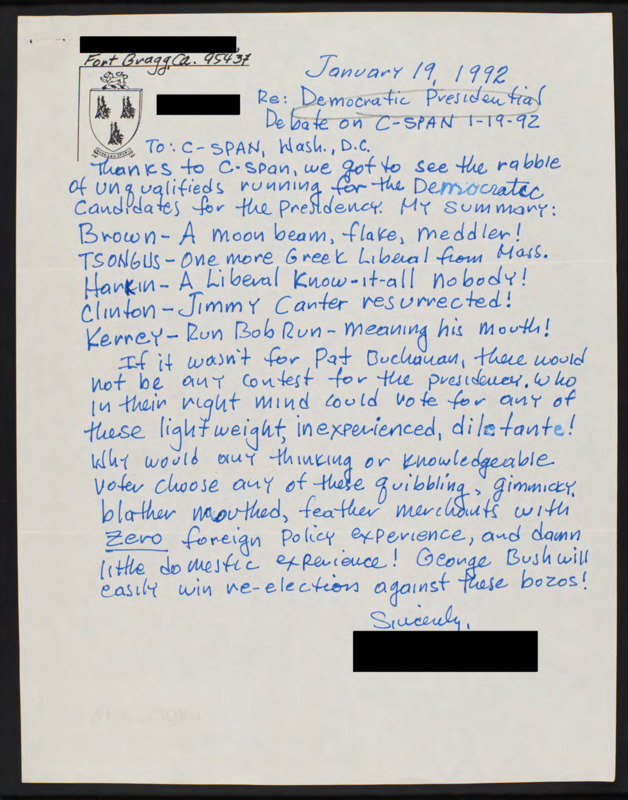 Fort Bragg, Ca. 95437
January 19, 1992
Re: Democratic Presidential
Debate on C-SPAN 1-19-92
To: C-SPAN, Wash., D.C.
Thanks to C-Span, we got to see the rabble
of unqualifieds running for the Democratic
Candidates for the Presidency. My Summary:
Brown- A moon beam, flake, meddler!
TSONGUS- One more Greek Liberal from Mass.
Harkin- A Liberal Know-it-all nobody!
Clinton- Jimmy Carter resurrected!
Kerrey- Run Bob Run- meaning his mouth!
If it wasn't for Pat Buchanan, there would
not be any contest for the presidency. Who
in their right mind could vote for any of
these lightweight, inexperienced, diletante!
Why would any thinking or knowledgeable
voter choose any of these quibbling, gimmicky,
blather mouthed, feather merchants with
Zero foreign policy experience, and damn
little domestic experience! George Bush will
easily win re-election against these bozos!
Sincerely,